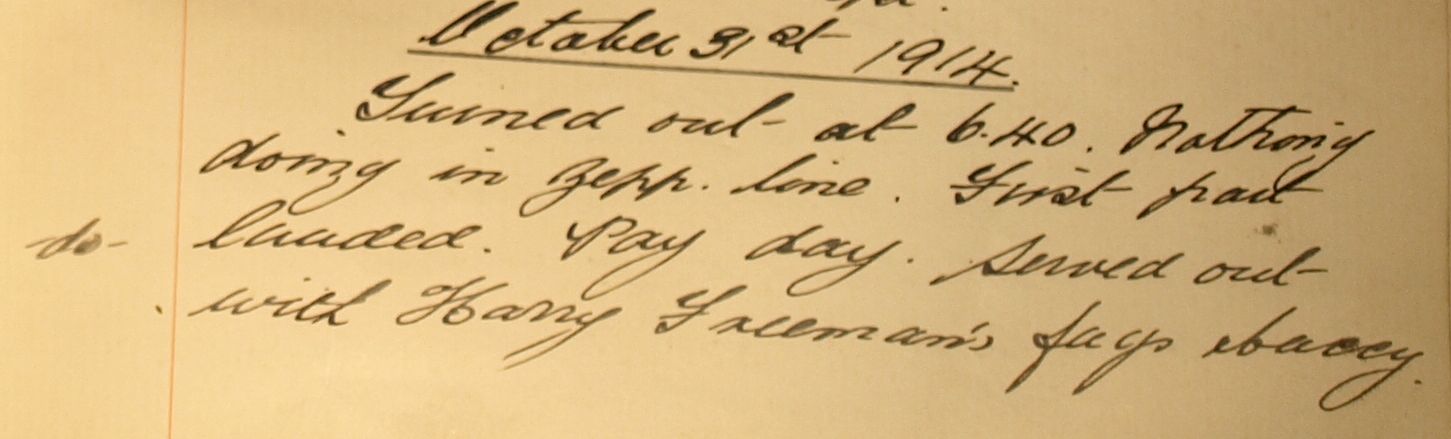 October 31st 1914.
Turned out at 6.40. Nothing
doing in Zepp. line. First part
-do- landed. Pay day. Served out
with Harry Freeman's fags & baccy.